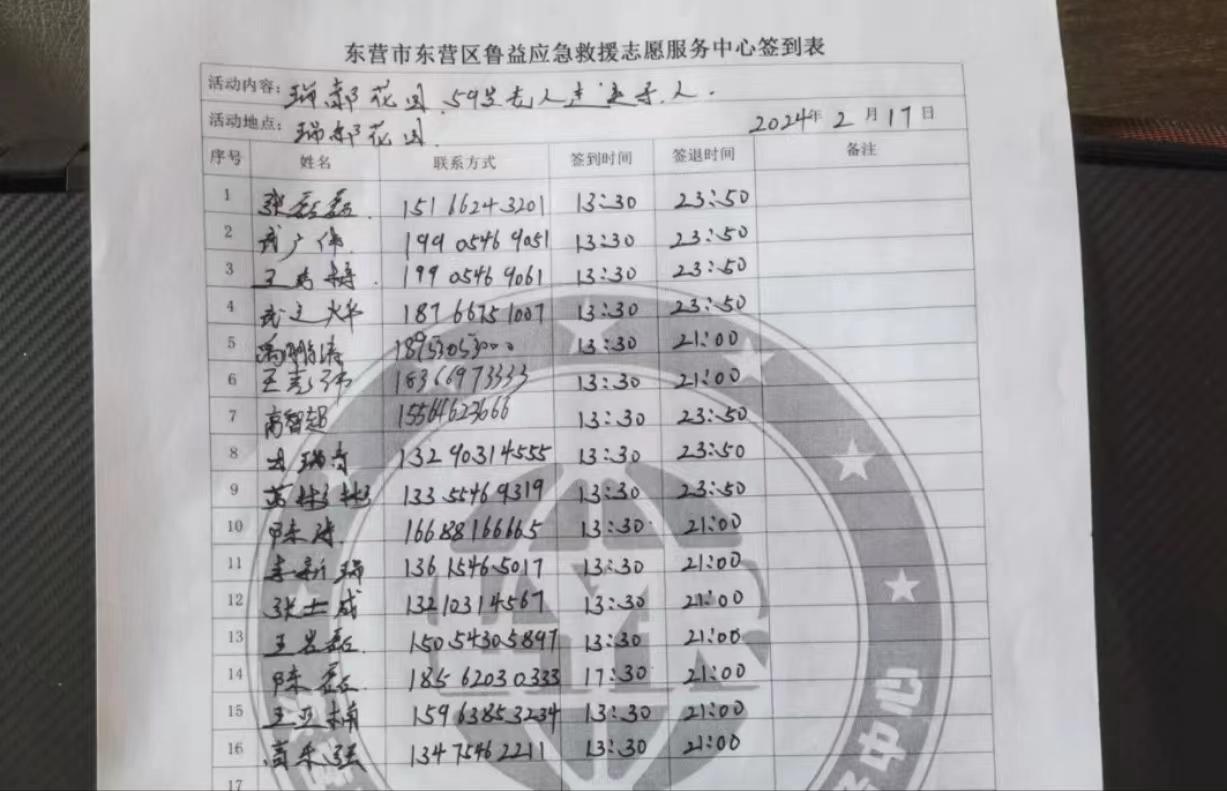 东营市东营区鲁益应急救援志愿服务中心签到表
活动内容: 瑞郝花园.59岁老人走失寻人.
活动地点: 瑞郝花园. 2024年 2 月 17 日
序号 姓名 联系方式 签到时间 签退时间 备注
1 张磊磊. 15166243201 13:30 23:50
2 武广伟. 199 0546 9051 13:30 23:50
3 199 0546 9061 13:30 23:50
4 武立火华 18766751007 13:30 23:50
5 18953053000 13:30 21:00
6 王彦伟 18366973333 13:30 21:00
7 高智超 15564623666 13:30 23:50
8 瑞奇 13290314555 13:30 23:50
9 苗彬彬 13355469319 13:30 23:50
10 陈涛. 16688166665 13:30 21:00
11 李新瑞 13615465017 13:30 21:00
12 张士成 13210314567 13:30 21:00
13 王岩磊. 15054305897 13:30 21:00
14 陈磊. 18562030333 17:30 21:00
15 王亚楠 15963853234 13:30 21:00
16 高乐强 13475462211 13:30 21:00
17
中心